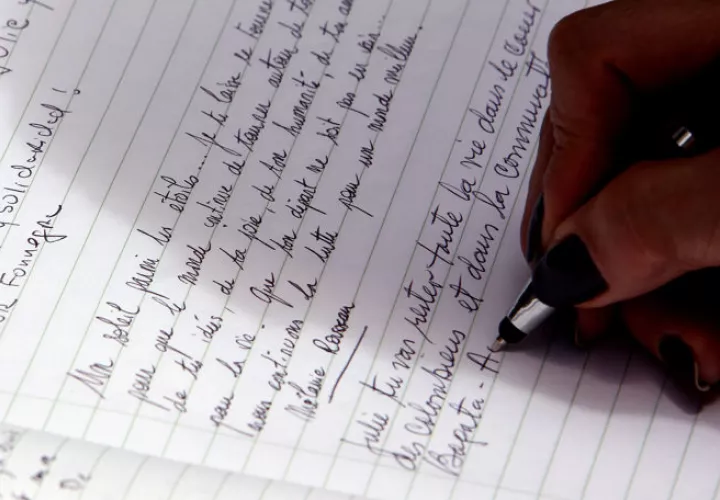 y solidaridad!
Fonnegra
Un soleil parmi les étoiles... Je te laisse te
pour que le monde continue de tourner autour de
de tes idées, de ta joie, de ton humanité, de ta
pour la vie. Que ton départ ne soit pas en vain...
nous continuons la lutte pour un monde meilleur.
Mélanie
Julie tu vas rester toute la vie dans le coeur
des colombiens et dans la communauté
Bogota - A